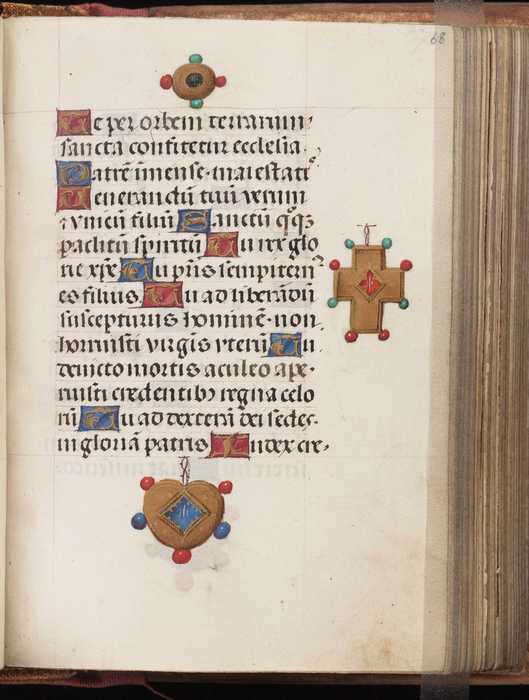 68
Te per orbem terrarum·
sancta confitetur ecclesia·
Patrē īmense·maiestatis
Uenerandū tuū verum
⁊ vnicū filiū Sanctū q̄q̨
paclitū spiritū Tu rex glo
rie xp̄e Tu pr̄is sempitern̄
es filius Tu ad liberādū
suscepturus hominē·non
horruisti virgis vterū Tu
deuicto mortis aculeo ape·
ruisti credentib₉ regna celo
rū Tu ad dexterā dei sedes·
in gloria patris Iudex cre·